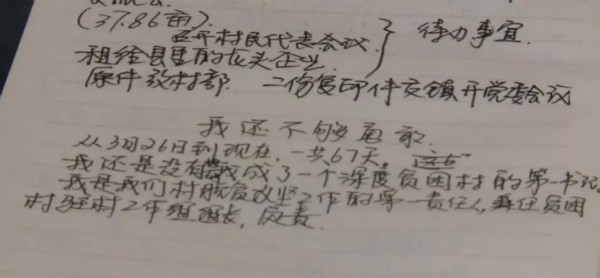 (37.86亩).
召开村民代表会议. } 待办事宜.
租给县里的龙头企业
原件放村部. 二份复印件交镇开党委会议
我还不够勇敢.
从3月26日到现在.一共67天.
我还是没有 我成了一个深度贫困村的第一书记.
我是我们村脱贫攻坚工作的第一责任人,兼任贫困
村驻村工作组组长,